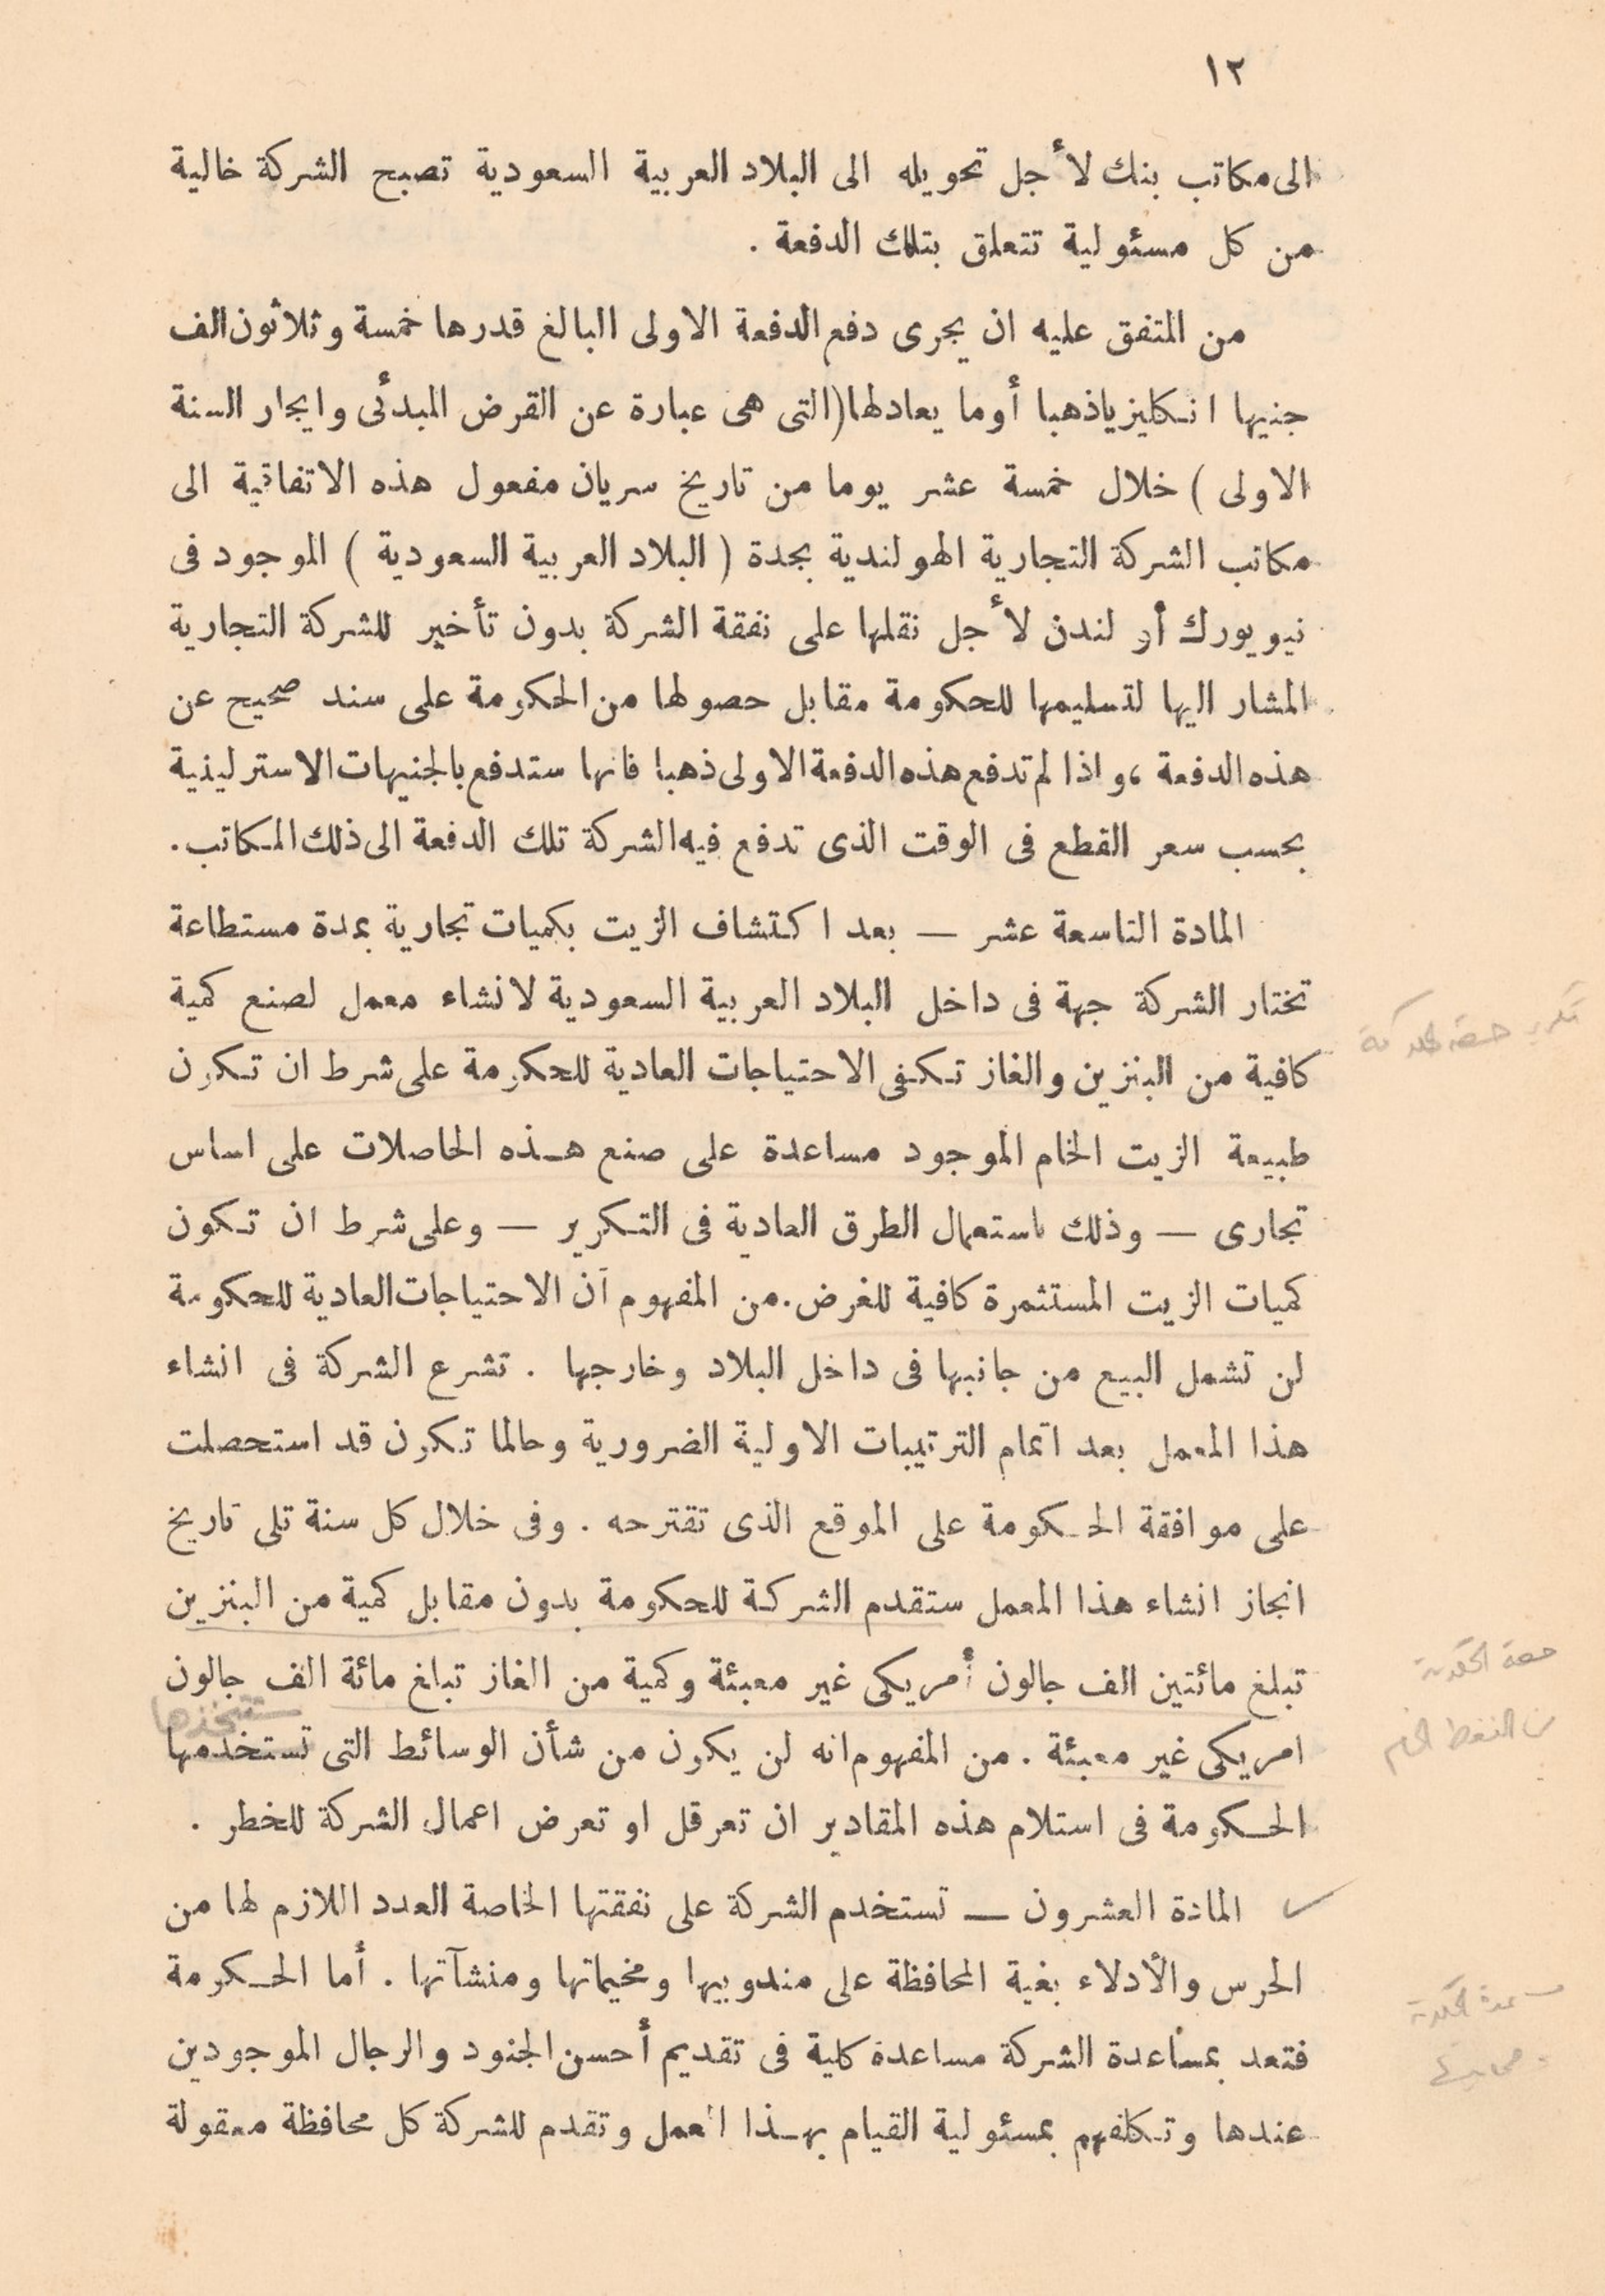 ١٢
الى مكاتب بنك لأجل تحويله الى البلاد العربية السعودية تصبح الشركة خالية
من كل مسئولية تتعلق بتلك الدفعة .
من المتفق عليه ان يجرى دفع الدفعة الاولى البالغ قدرها خمسة وثلاثون الف
جنيها انكليزيا ذهبا أو ما يعادلها (التى هى عبارة عن القرض المبدئى وايجار السنة
الاولى ) خلال خمسة عشر يوما من تاريخ سريان مفعول هذه الاتفاقية الى
مكاتب الشركة التجارية الهولندية بجدة ( البلاد العربية السعودية ) الموجود فى
نيويورك أو لندن لأجل نقلها على نفقة الشركة بدون تأخير للشركة التجارية
المشار اليها لتسليمها للحكومة مقابل حصولها من الحكومة على سند صحيح عن
هذه الدفعة ، واذا لم تدفع هذه الدفعة الاولى ذهبا فانها ستدفع بالجنيهات الاسترلينية
بحسب سعر القطع فى الوقت الذى تدفع فيه الشركة تلك الدفعة الى ذلك المكاتب .
المادة التاسعة عشر — بعد اكتشاف الزيت بكميات تجارية بمدة مستطاعة
تختار الشركة جهة فى داخل البلاد العربية السعودية لانشاء معمل لصنع كمية
كافية من البنزين والغاز تكفى الاحتياجات العادية للحكومة على شرط ان تكون
طبيعة الزيت الخام الموجود مساعدة على صنع هذه الحاصلات على اساس
تجارى — وذلك باستعمال الطرق العادية فى التكرير — وعلى شرط ان تكون
كميات الزيت المستثمرة كافية للغرض . من المفهوم أن الاحتياجات العادية للحكومة
لن تشمل البيع من جانبها فى داخل البلاد وخارجها . تشرع الشركة فى انشاء
هذا المعمل بعد اتمام الترتيبات الاولية الضرورية وحالما تكون قد استحصلت
على موافقة الحكومة على الموقع الذى تقترحه . وفى خلال كل سنة تلى تاريخ
انجاز انشاء هذا المعمل ستقدم الشركة للحكومة بدون مقابل كمية من البنزين
تبلغ مائتين الف جالون أمريكى غير معبئة وكمية من الغاز تبلغ مائة الف جالون
ستتخذها
امريكى غير معبئة . من المفهوم انه لن يكون من شأن الوسائط التى تستخدمها
الحكومة فى استلام هذه المقادير ان تعرقل او تعرض اعمال الشركة للخطر .
المادة العشرون — تستخدم الشركة على نفقتها الخاصة العدد اللازم لها من
الحرس والأدلاء بغية المحافظة على مندوبيها ومخيماتها ومنشآتها . أما الحكومة
فتعد بمساعدة الشركة مساعدة كلية فى تقديم أحسن الجنود والرجال الموجودين
عندها وتكلفهم بمسئولية القيام بهذا العمل وتقدم للشركة كل محافظة معقولة
حصة الحكومة
من النفط الخام